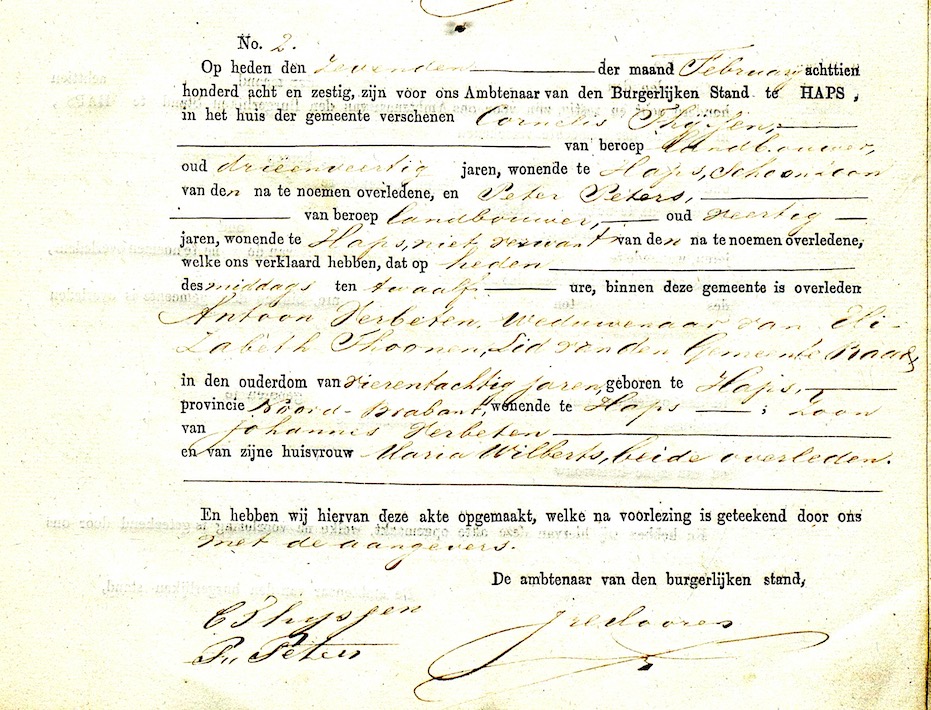 No. 2.
Op heden den Zevenden der maand February achttien
honderd acht en zestig, zijn voor ons Ambtenaar van den Burgerlijken Stand te HAPS,
in het huis der gemeente verschenen Cornelis Thijssen,
van beroep landbouwer,
oud drieenveertig jaren, wonende te Haps, Schoonzoon
van den na te noemen overledene, en Peter Peters,
van beroep landbouwer, oud veertig
jaren, wonende te Haps, niet verwant van den na te noemen overledene,
welke ons verklaard hebben, dat op heden
des middags ten twaalf ure, binnen deze gemeente is overleden
Antoon Verbeten, Weduwenaar van Eli-
zabeth Thoonen, Lid van den Gemeente Raad,
in den ouderdom van vierentachtig jaren, geboren te Haps,
provincie Noord-Brabant, wonende te Haps ; Zoon
van Johannis Verbeten
en van zijne huisvrouw Maria Wilberts, beide overleden.
En hebben wij hiervan deze akte opgemaakt, welke na voorlezing is geteekend door ons
met de aangevers.
De ambtenaar van den burgerlijken stand,
C Thyssen
P. Peters